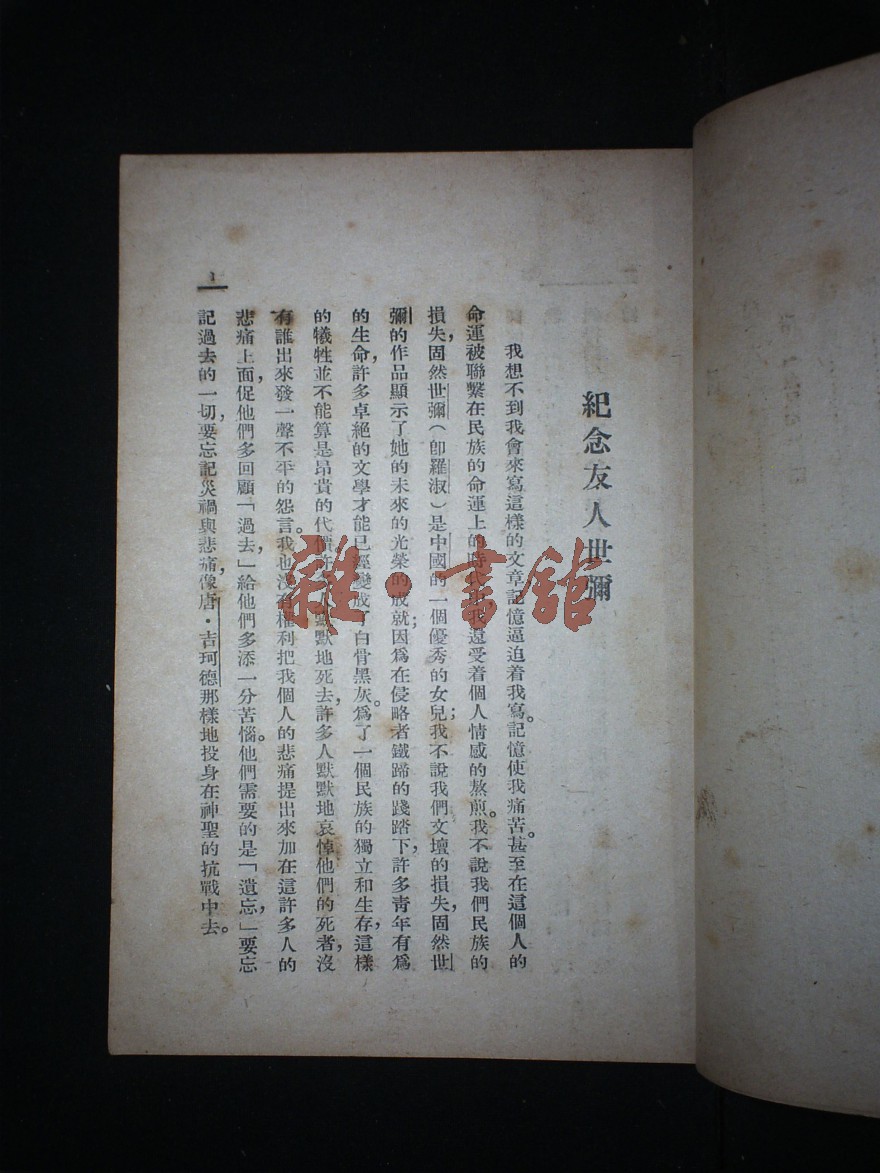 紀念友人世彌
我想不到我會來寫這樣的文章記憶逼迫着我寫。記憶使我痛苦。甚至在這個人的
命運被聯繫在民族的命運上的時代我還受着個人情感的熬煎。我不說我們民族的
損失，固然世彌（卽羅淑）是中國的一個優秀的女兒；我不說我們文壇的損失，固然世
彌的作品顯示了她的未來的光榮的成就；因爲在侵略者鐵蹄的踐踏下，許多靑年有爲
的生命，許多卓絕的文學才能已經變成了白骨黑灰。爲了一個民族的獨立和生存，這樣
的犧牲並不能算是昂貴的代價許默默地死去，許多人默默地哀悼他們的死者，沒
有誰出來發一聲不平的怨言。我也沒有權利把我個人的悲痛提出來加在這許多人的
悲痛上面，促他們多回顧「過去，」給他們多添一分苦惱。他們需要的是「遺忘，」要忘
記過去的一切，要忘記災禍與悲痛，像唐・吉珂德那樣地投身在神聖的抗戰中去。
1
雜・書館